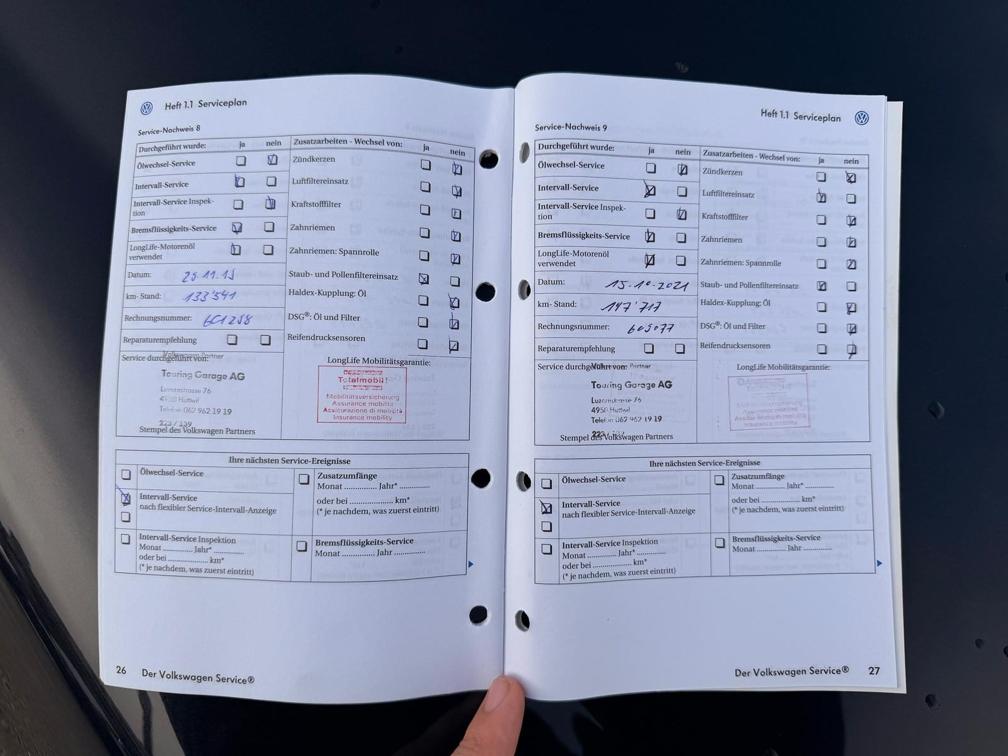 Heft 1.1 Serviceplan
Service-Nachweis 8
Durchgeführt wurde: ja nein
Ölwechsel-Service
Intervall-Service
Intervall-Service Inspek-
tion
Bremsflüssigkeits-Service
LongLife-Motorenöl
verwendet
Datum:
km- Stand: 133'541
Rechnungsnummer:
Reparaturempfehlung
Service durchgeführt von:
Touring Garage AG
Luzernstrasse 76
4950 Huttwil
Telefon 062 962 19 19
Stempel des Volkswagen Partners
Zusatzarbeiten - Wechsel von: ja nein
Zündkerzen
Luftfiltereinsatz
Kraftstofffilter
Zahnriemen
Zahnriemen: Spannrolle
Staub- und Pollenfiltereinsatz
Haldex-Kupplung: Öl
DSG®: Öl und Filter
Reifendrucksensoren
LongLife Mobilitätsgarantie:
Totalmobil!
Mobilitätsversicherung
Assurance mobilité
Assicurazione di mobilità
Insurance mobility
Ihre nächsten Service-Ereignisse
Ölwechsel-Service
Intervall-Service
nach flexibler Service-Intervall-Anzeige
Intervall-Service Inspektion
Monat ............ Jahr* ............
oder bei ............ km*
(* je nachdem, was zuerst eintritt)
Zusatzumfänge
Monat ............ Jahr* ............
oder bei ............ km*
(* je nachdem, was zuerst eintritt)
Bremsflüssigkeits-Service
Monat ............ Jahr ............
26 Der Volkswagen Service®
Heft 1.1 Serviceplan
Service-Nachweis 9
Durchgeführt wurde: ja nein
Ölwechsel-Service
Intervall-Service
Intervall-Service Inspek-
tion
Bremsflüssigkeits-Service
LongLife-Motorenöl
verwendet
Datum: 15.10.2021
km- Stand: 147'717
Rechnungsnummer: 605077
Reparaturempfehlung
Service durchgeführt von:
Touring Garage AG
Luzernstrasse 76
4950 Huttwil
Telefon 062 962 19 19
Stempel des Volkswagen Partners
Zusatzarbeiten - Wechsel von: ja nein
Zündkerzen
Luftfiltereinsatz
Kraftstofffilter
Zahnriemen
Zahnriemen: Spannrolle
Staub- und Pollenfiltereinsatz
Haldex-Kupplung: Öl
DSG®: Öl und Filter
Reifendrucksensoren
LongLife Mobilitätsgarantie:
Ihre nächsten Service-Ereignisse
Ölwechsel-Service
Intervall-Service
nach flexibler Service-Intervall-Anzeige
Intervall-Service Inspektion
Monat ............ Jahr* ............
oder bei ............ km*
(* je nachdem, was zuerst eintritt)
Zusatzumfänge
Monat ............ Jahr* ............
oder bei ............ km*
(* je nachdem, was zuerst eintritt)
Bremsflüssigkeits-Service
Monat ............ Jahr ............
Der Volkswagen Service® 27